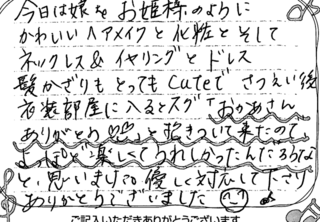 今日は娘をお姫様のように
かわいいヘアメイクと化粧とそして
ネックレス&イヤリングとドレス
髪かざりもとってもcuteで さつえい後
衣装部屋に入るとスグ「おかあさん
ありがとう♡♡」と抱きついて来たので、
よっぽど楽しくてうれしかったんだろうな
と、思いました。優しく対応して下さり
ありがとうございました
ご記入いただきありがとうございます